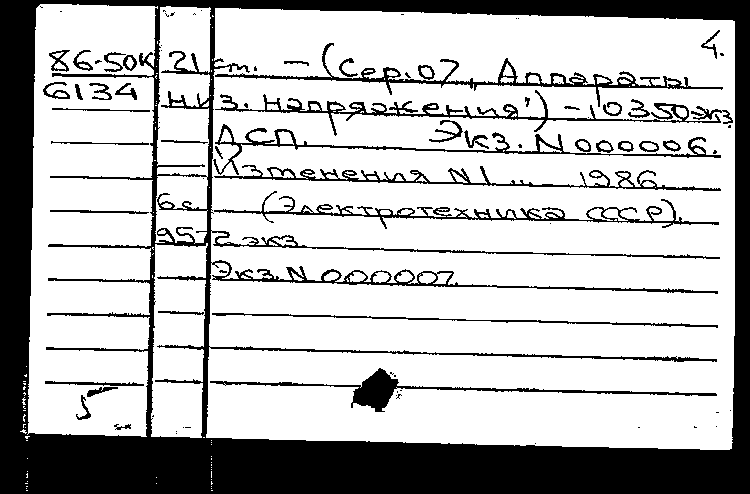 4.
86-50К 21 ст. – (Сер.07 „Аппараты
6134 низ. напряжения") – 10350экз.
ДСП. Экз. N 000006.
Изменения N1 ... 1986.
6 с. (Электротехника СССР).
9572 экз.
Экз. N 000007.
5